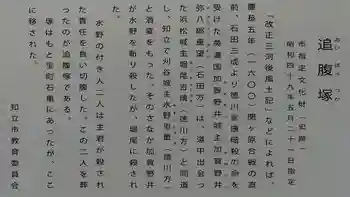 おい ばら づか
追腹塚
市指定文化財（史跡）
昭和四十九年五月二十一日指定
「改正三河後風土記」などによれば、
慶長五年（一六〇〇）関ヶ原合戦の直
前、石田三成より徳川家康暗殺の命を
受けた美濃国加賀野井城主加賀野井
弥八郎重望（石田方）は、途中出会っ
た浜松城主堀尾吉晴（徳川方）と同道
し、知立で刈谷城主水野忠重（徳川方）
と酒宴をもった。そのさなか加賀野井
が水野を斬り殺したが、堀尾に殺され
た。
水野の付き人二人は主君が殺され
た責任を負い切腹した。この二人を葬
ったのが追腹塚である。
塚はもと宝町石重にあったが、ここ
に移された。
知立市教育委員会